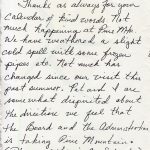 Thanks as always for your
Calendar of kind words. Not
much happening at Pine Mtn.
We have weathered a slight
cold spell with some frozen
pipes etc. Not much has
changed since our visit this
past summer. Pat and I are
somewhat dispirited about
the direction we feel that
the Board and the Administration
is taking Pine Mountain.